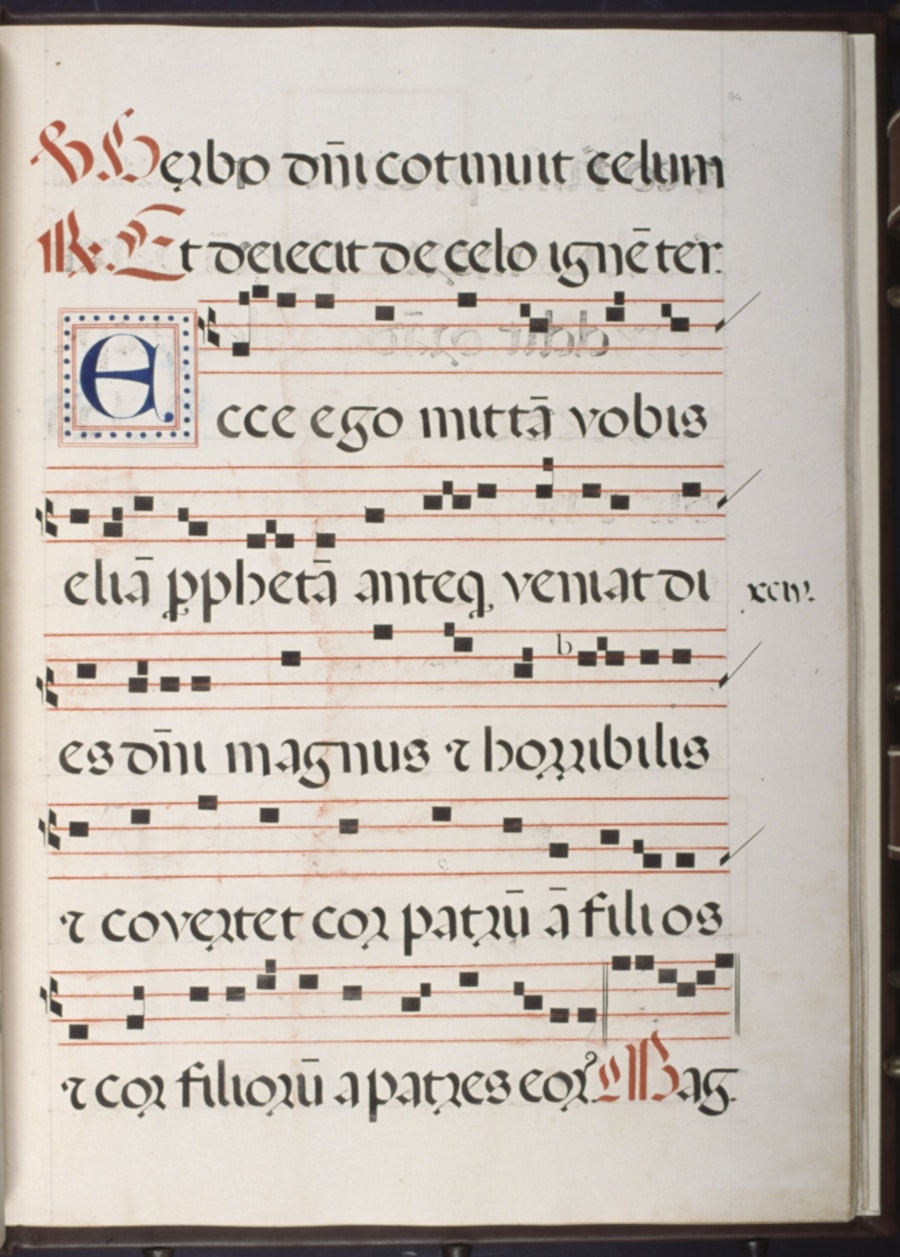 ℣. Verbo dn̄i cotinuit celum
℟. Et deiecit de celo ignē ter.
Ecce ego mittā vobis
eliā ꝓphetā anteq̨ veniat di
xciv.
es dn̄i magnus ⁊ horribilis
b
⁊ covertet cor patrū ā filios
⁊ cor filiorū a patres eoꝝ. Mag.